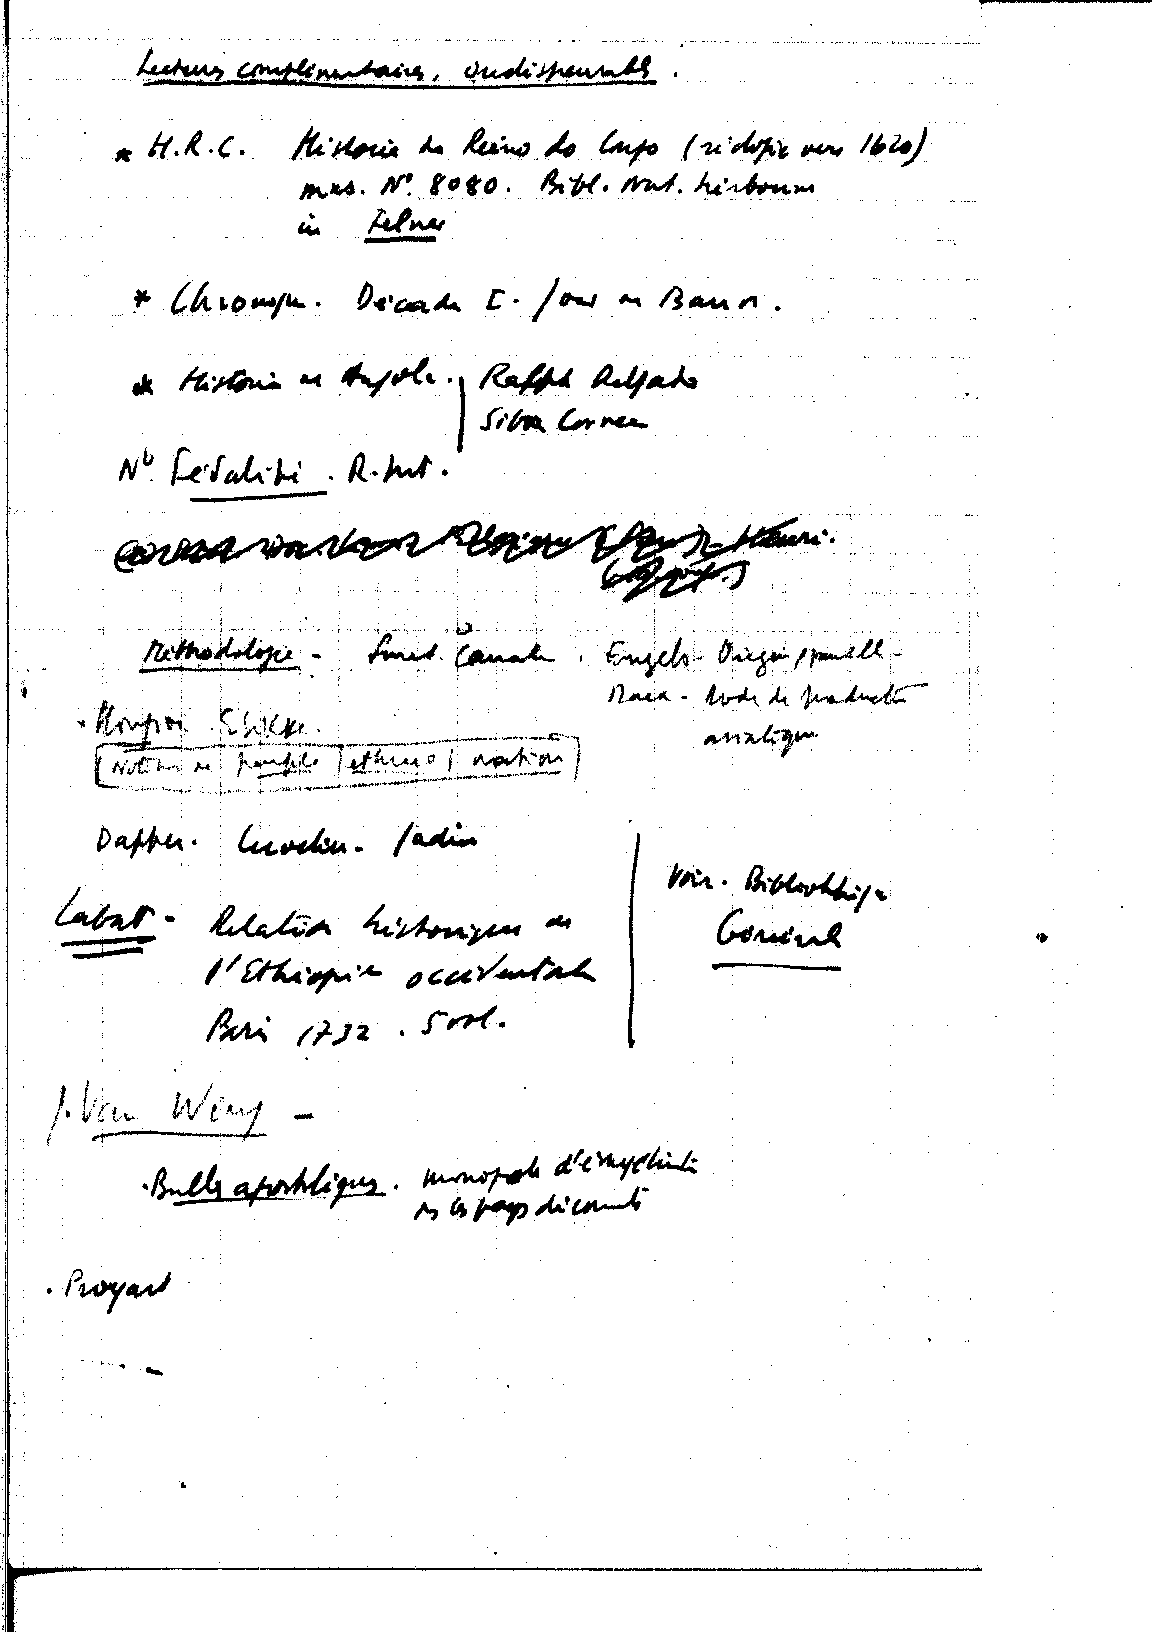 Lectures complémentaires, indispensables.
* H.R.C. Historia do Reino do Congo (rédigé vers 1620)
mns. N° 8080. Bibl. Nat. Lisbonne
in Felner
* Chronique. Décade I. Joao de Barros.
* Historia de Angola. Ralph Delgado
Silva Correa
Nb Féodalité. R.
Henri.
Méthodologie - Suret Canale. Engels - Origine famille -
Marx - Mode de production
asiatique
Notion de peuple / ethnie / nation
Dapper. Cuvelier - Jadin
Voir. Bibliothèque
Labat - Relation historique de
l'Ethiopie occidentale
Paris 1732. 5 vol.
J. Van Wing -
. Bulles apostoliques. monopole d'évangélisation
des pays découverts
. Proyart